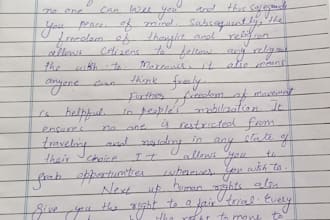 no one can harm you and thus safeguards
you peace of mind. Subsequently, the
freedom of thought and religion
allows citizens to follow any religion
the wish to. Moreover, it also means
anyone can think freely.
Further, freedom of movement
is helpful in people's mobilization. It
ensures no one is restricted from
traveling and residing in any state of
their choice. It allows you to
grab opportunities wherever you wish to.
Next up human rights also
give you the right to a fair trial. Every
the right to move to